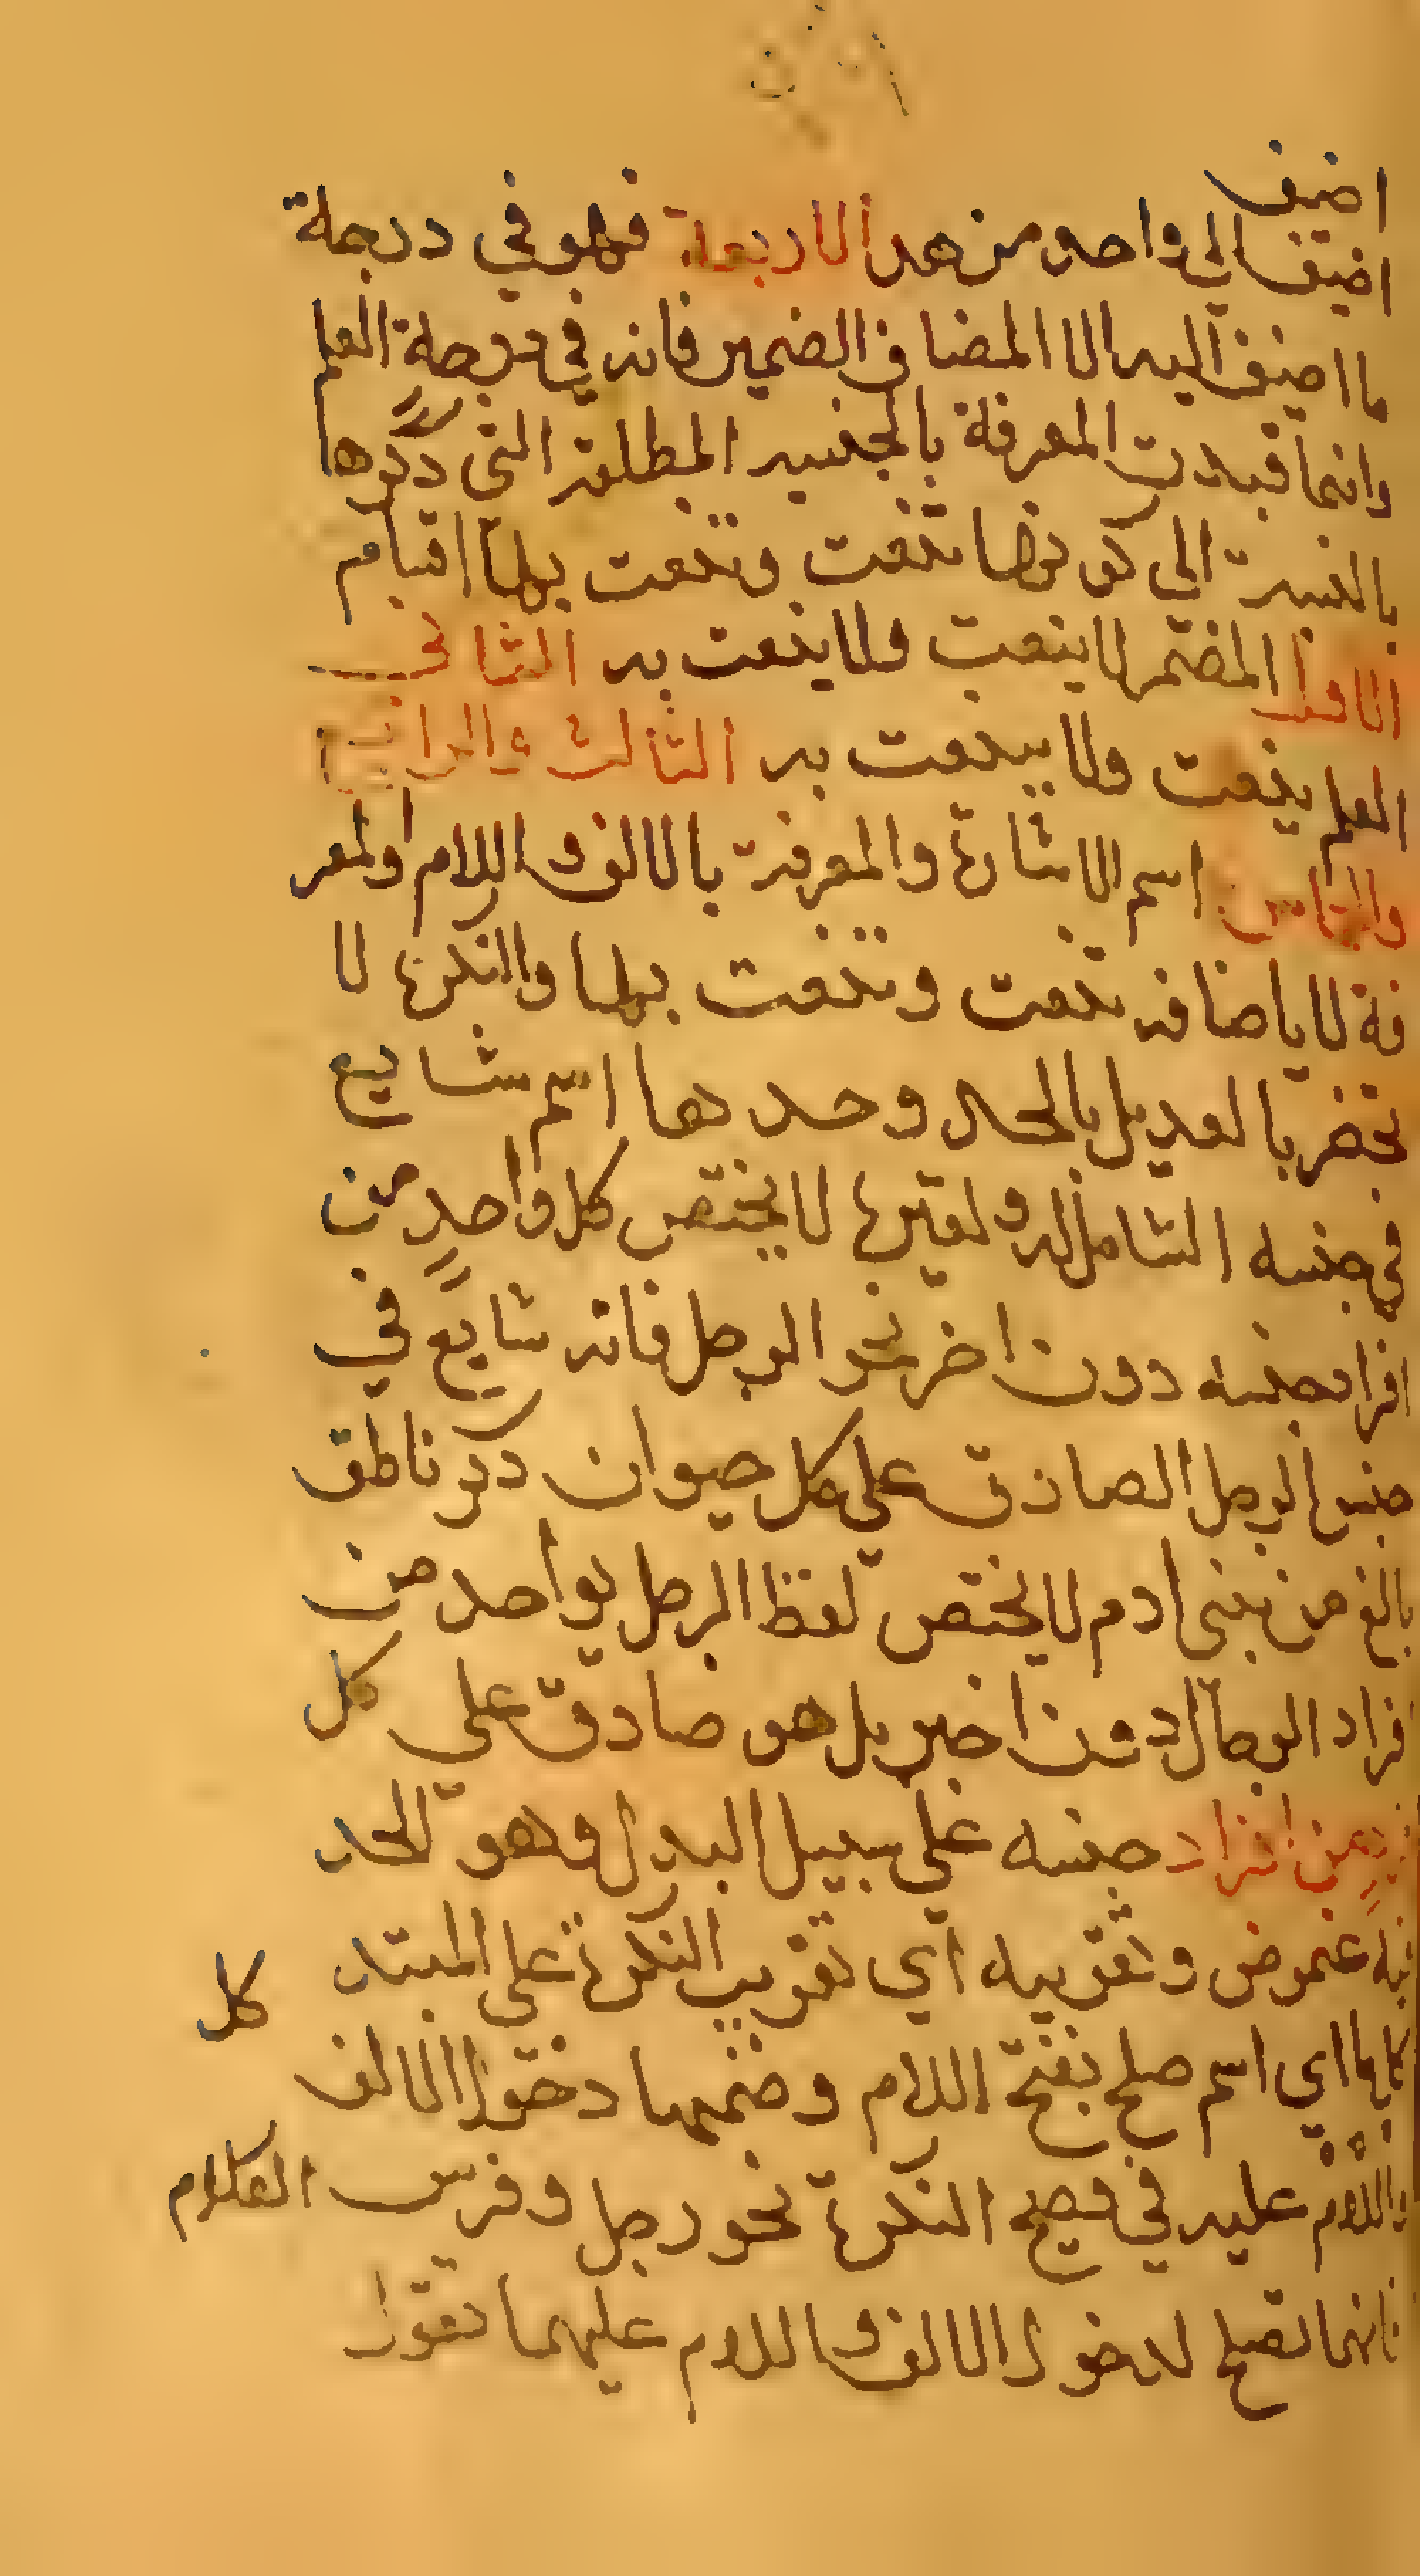 اضيف
اضيف الي واحد من هده الاربعة فهو في درجة
ما اضيف اليه الا المضاف الضمير فانه في درجة العلم
وانما قيدت المعرفة بالجنسيه المطلقه التي ذكرها
بالنسبة الى كونها تنعت وتنعت بها اقسام
الاول المضمر لا ينعت ولا ينعت به الثاني
العلم ينعت ولا ينعت به الثالث والرابع
والخامس اسم الاشارة والمعرفة بالالف واللام والمعر
فة لا ياضافه تنعت وتنعت بها والنكرة لا
تحضر بالعد بل بالحد وحدها اسم شايع
في جنسه الشامل له ولغيرة لا يختص كل واحد من
افراد جنسه دون اخر نحو الرجل فانه شايع في
جنس الرجل الصادق علي كل حيوان ذكر ناطق
بالغ من بني ادم لا يختص لفظ الرجل بواحد من
افراد الرجال دون اخير بل هو صادق علي كل
فرد من افراد جنسه علي سبيل البدل وهو الحد
فيه غموض وتقريبه اي تقريب النكرة على المبتد
كل
كلما اي اسم صلح بفتح اللام وضمها دخول الالف
واللام عليه في فصيح النكرة نحو رجل وفرس الكلام
فانهما تصلح لدخول الالف واللام عليهما تقول